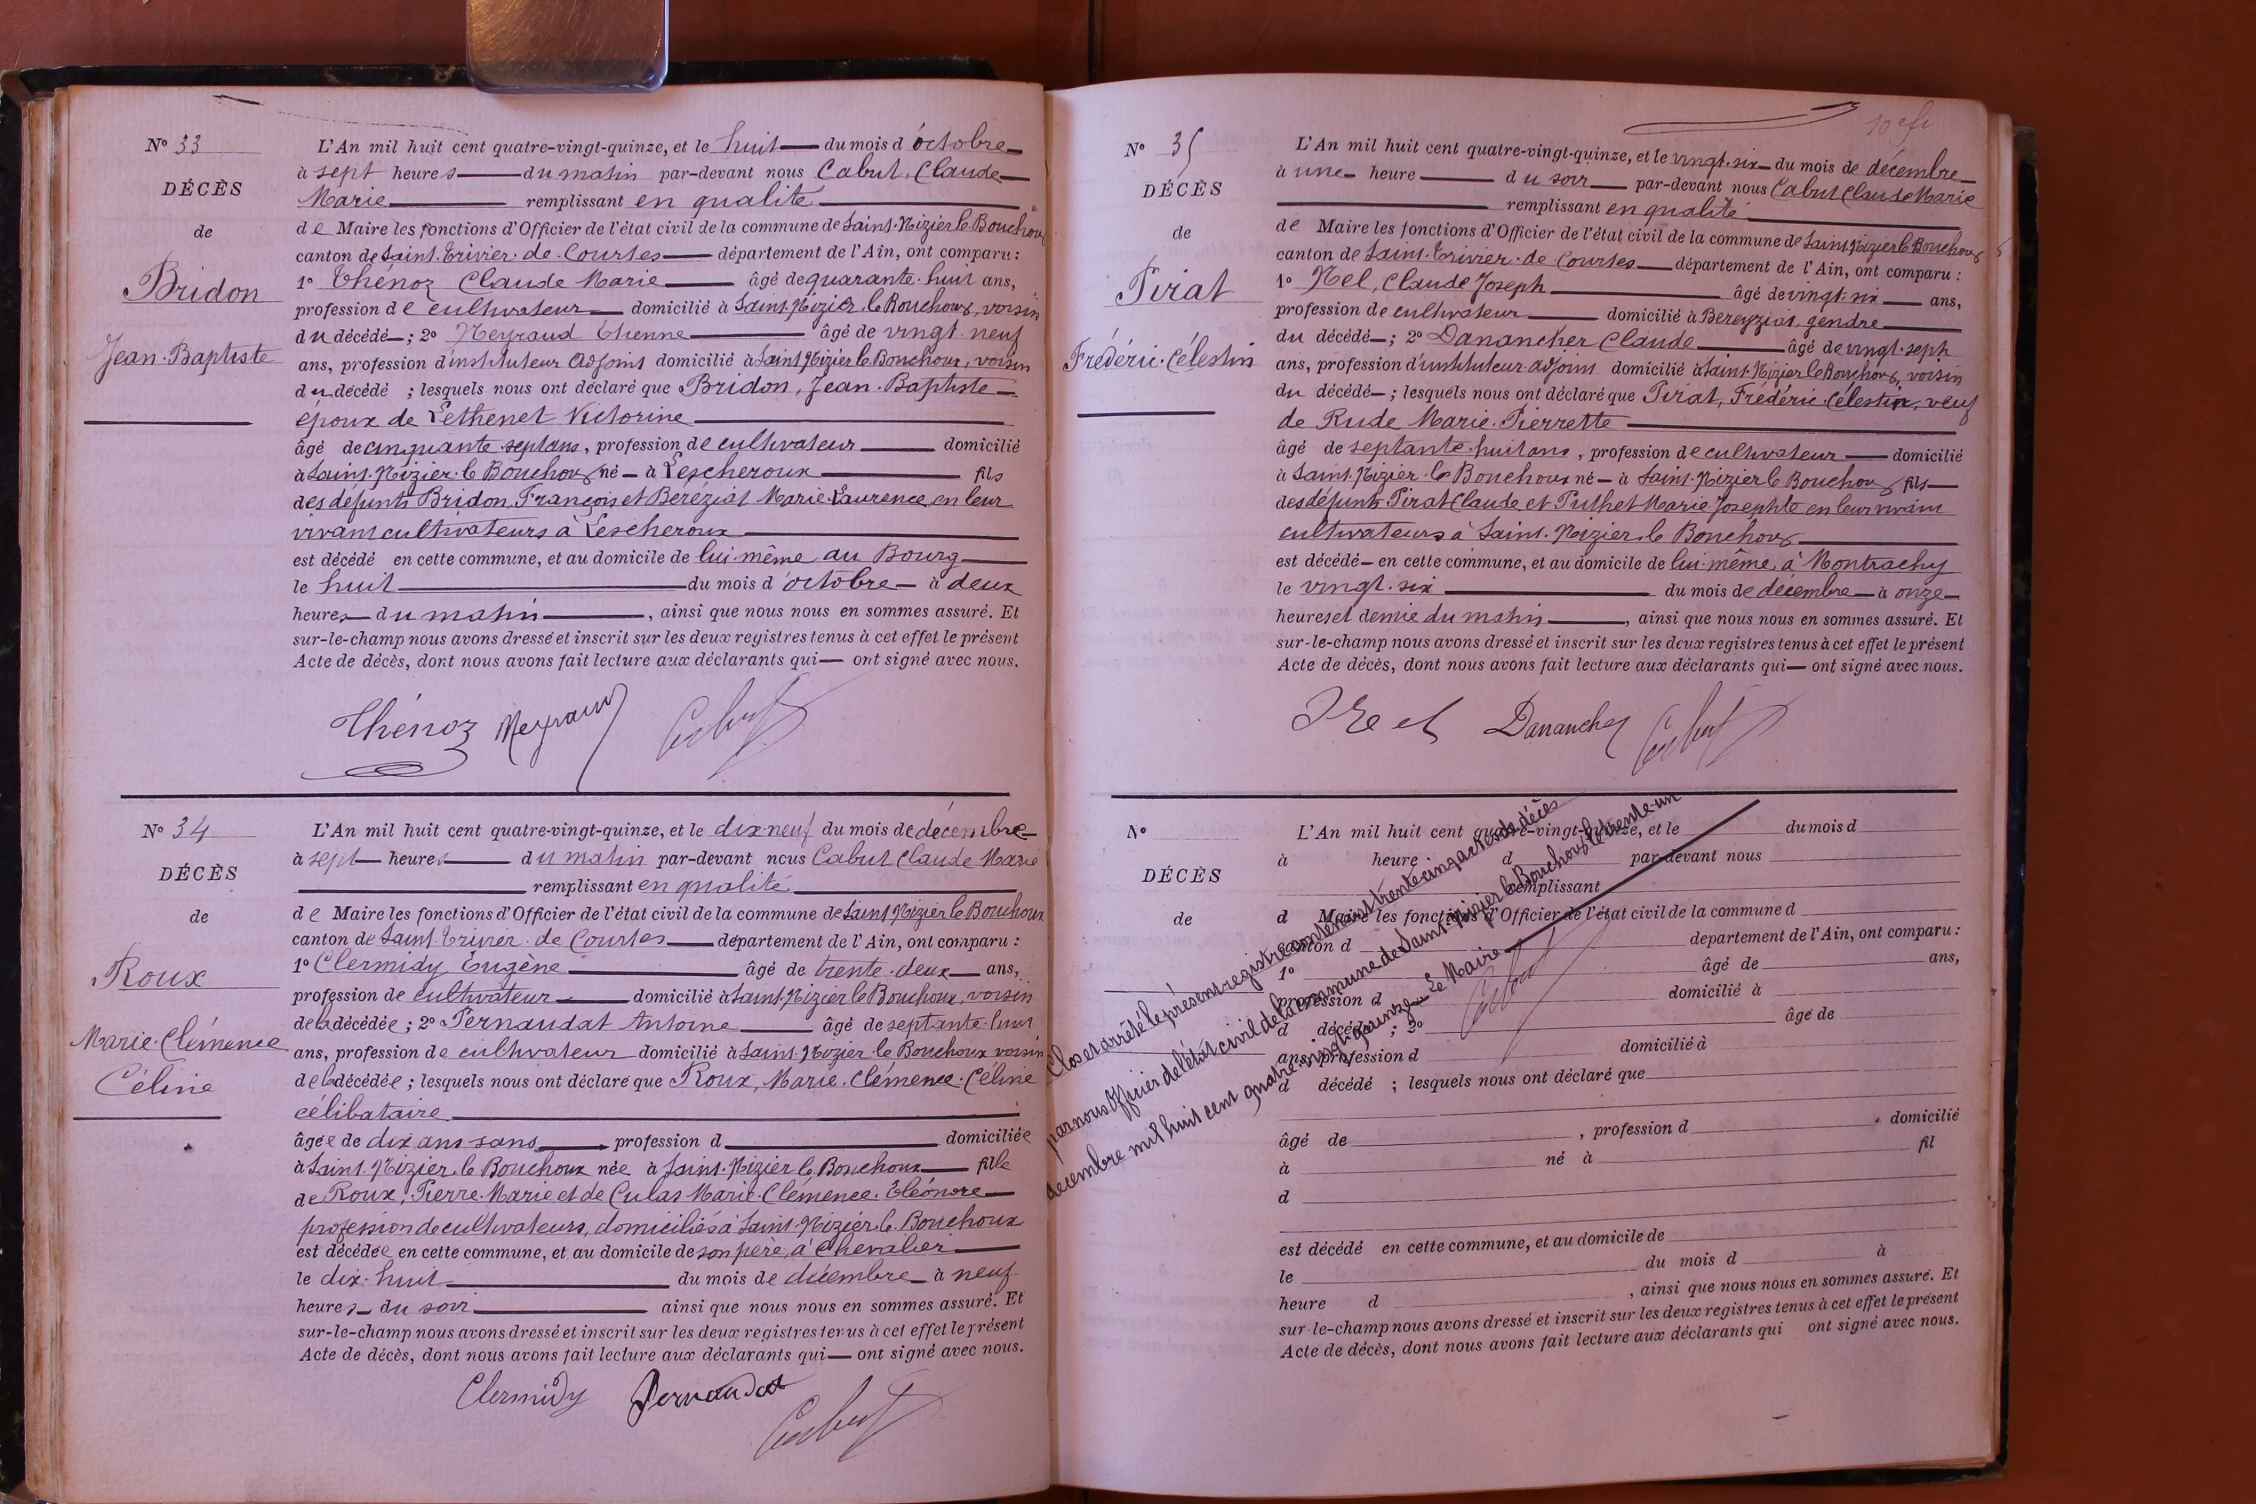 N° 33
DÉCÈS
de
Bridon
Jean-Baptiste
L'An mil huit cent quatre-vingt-quinze, et le huit du mois d'octobre
à sept heures du matin par-devant nous Cabut, Claude
Marie remplissant en qualité
de Maire les fonctions d'Officier de l'état civil de la commune de Saint-Nizier le Bouchoux
canton de Saint-Trivier-de-Courtes département de l'Ain, ont comparu :
1° Thénoz Claude Marie âgé de quarante-huit ans,
profession de cultivateur domicilié à Saint-Nizier le Bouchoux, voisin
du décédé ; 2° Meyraud Etienne âgé de vingt-neuf
ans, profession d'instituteur adjoint domicilié à Saint-Nizier le Bouchoux, voisin
du décédé ; lesquels nous ont déclaré que Bridon, Jean-Baptiste
époux de Lethenet Victorine
âgé de cinquante-sept ans, profession de cultivateur domicilié
à Saint-Nizier-le Bouchoux né à Lescheroux fils
des défunts Bridon François et Beréziat Marie Laurence, en leur
vivant cultivateurs à Lescheroux
est décédé en cette commune, et au domicile de lui-même au Bourg
le huit du mois d'octobre à deux
heures du matin, ainsi que nous nous en sommes assuré. Et
sur-le-champ nous avons dressé et inscrit sur les deux registres tenus à cet effet le présent
Acte de décès, dont nous avons fait lecture aux déclarants qui ont signé avec nous.
Thénoz Meyraud Cabut
N° 34
DÉCÈS
de
Roux
Marie-Clémence
Céline
L'An mil huit cent quatre-vingt-quinze, et le dix-neuf du mois de décembre
à sept heures du matin par-devant nous Cabut Claude Marie
remplissant en qualité
de Maire les fonctions d'Officier de l'état civil de la commune de Saint-Nizier le Bouchoux
canton de Saint-Trivier-de-Courtes département de l'Ain, ont comparu :
1° Clermidy Eugène âgé de trente-deux ans,
profession de cultivateur domicilié à Saint-Nizier le Bouchoux, voisin
de la décédée ; 2° Pernaudat Antoine âgé de septante-huit
ans, profession de cultivateur domicilié à Saint-Nizier-le Bouchoux voisin
de la décédée ; lesquels nous ont déclaré que Roux, Marie-Clémence-Céline
célibataire
âgée de dix ans sans profession d domiciliée
à Saint-Nizier-le Bouchoux née à Saint-Nizier le Bouchoux fille
de Roux, Pierre-Marie et de Culas Marie-Clémence-Eléonore
profession de cultivateurs, domiciliés à Saint-Nizier-le-Bouchoux
est décédée en cette commune, et au domicile de son père, à Chevalier
le dix-huit du mois de décembre à neuf
heures du soir ainsi que nous nous en sommes assuré. Et
sur-le-champ nous avons dressé et inscrit sur les deux registres tenus à cet effet le présent
Acte de décès, dont nous avons fait lecture aux déclarants qui ont signé avec nous.
Clermidy Pernaudat
Cabut
N° 35
DÉCÈS
de
Pirat
Frédéric-Célestin
L'An mil huit cent quatre-vingt-quinze, et le vingt-six du mois de décembre
à une heure du soir par-devant nous Cabut Claude Marie
remplissant en qualité
de Maire les fonctions d'Officier de l'état civil de la commune de Saint-Nizier le Bouchoux
canton de Saint-Trivier-de Courtes département de l'Ain, ont comparu :
1° Nel, Claude Joseph âgé de vingt-six ans,
profession de cultivateur domicilié à Bereyziat, gendre
du décédé ; 2° Danancher Claude âgé de vingt-sept
ans, profession d'instituteur adjoint domicilié à Saint-Nizier le Bouchoux, voisin
du décédé ; lesquels nous ont déclaré que Pirat, Frédéric-Célestin, veuf
de Rude Marie-Pierrette
âgé de septante-huit ans, profession de cultivateur domicilié
à Saint-Nizier-le Bouchoux né à Saint-Nizier le Bouchoux fils
des défunts Pirat Claude et Puthet Marie Josephte en leur vivant
cultivateurs à Saint-Nizier-le Bouchoux
est décédé en cette commune, et au domicile de lui-même, à Montrachy
le vingt-six du mois de décembre à onze
heures et demie du matin, ainsi que nous nous en sommes assuré. Et
sur-le-champ nous avons dressé et inscrit sur les deux registres tenus à cet effet le présent
Acte de décès, dont nous avons fait lecture aux déclarants qui ont signé avec nous.
Danancher Cabut
N°
DÉCÈS
de
L'An mil huit cent quatre-vingt-quinze, et le du mois d
à heure d par-devant nous
remplissant
d Maire les fonctions d'Officier de l'état civil de la commune d
canton d département de l'Ain, ont comparu :
1° âgé de ans,
profession d domicilié à
d décédé ; 2° âgé de
ans, profession d domicilié à
d décédé ; lesquels nous ont déclaré que
âgé de , profession d domicilié
à né à fil
d
est décédé en cette commune, et au domicile de
le du mois d à
heure d , ainsi que nous nous en sommes assuré. Et
sur-le-champ nous avons dressé et inscrit sur les deux registres tenus à cet effet le présent
Acte de décès, dont nous avons fait lecture aux déclarants qui ont signé avec nous.
Clos et arrêté le présent registre contenant trente cinq actes de décès
par nous Officier de l'état civil de la commune de Saint-Nizier le Bouchoux le trente-un
décembre mil huit cent quatre-vingt-quinze Le Maire
Cabut